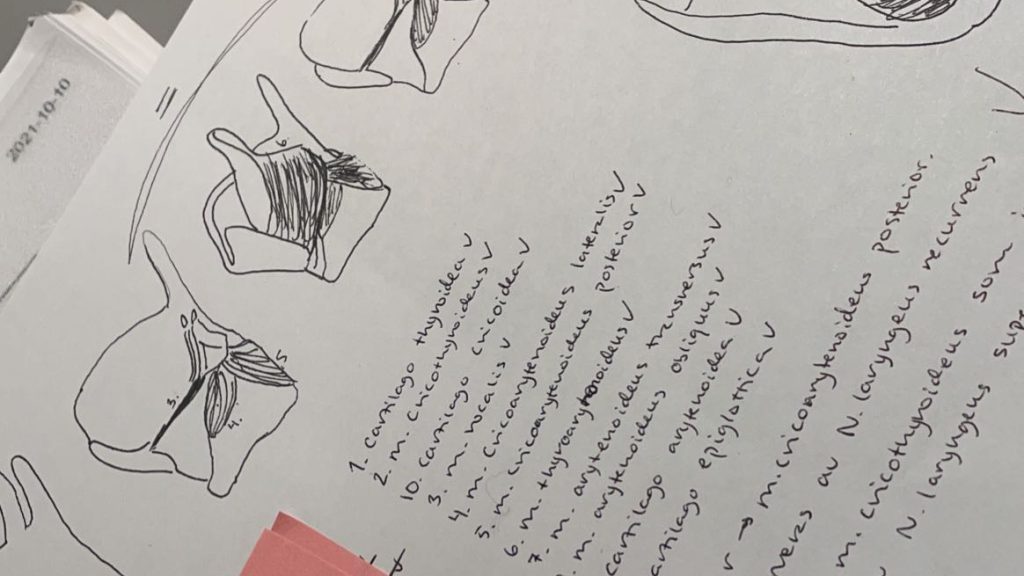 2021-10-10
6
3.
4.
5.
1. cartilago thyroidea ✓
2. m. cricothyroideus ✓
10. cartilago cricoidea ✓
3. m. vocalis ✓
4. m. cricoarytenoideus lateralis ✓
5. m. cricoarytenoideus posterior ✓
6. m. thyroarytenoideus ✓
7. m. arytenoideus transversus ✓
m. arytenoideus obliquus ✓
cartilago arytenoidea ✓
artilago epiglottica ✓
r → m. cricoarytenoideus posterior.
veras av N. laryngeus recurrens
m. cricothyroideus som i
N. laryngeus supe